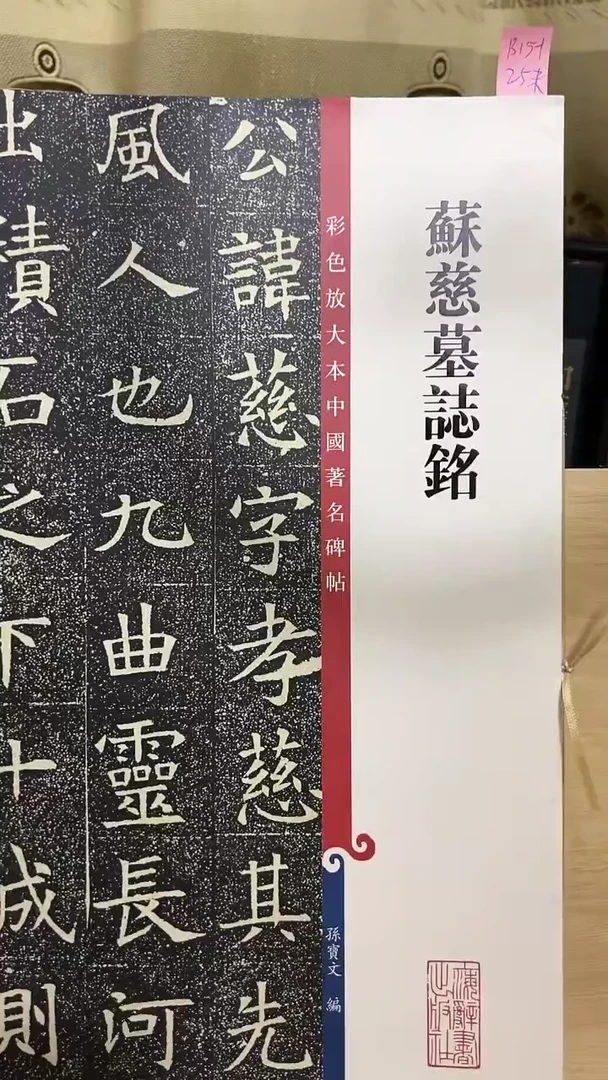 蘇慈墓誌銘
彩色放大本中國著名碑帖
孫寶文 編
公諱慈字孝慈其先
風人也九曲靈長河
出積石之下十成則
上海辭書出版社